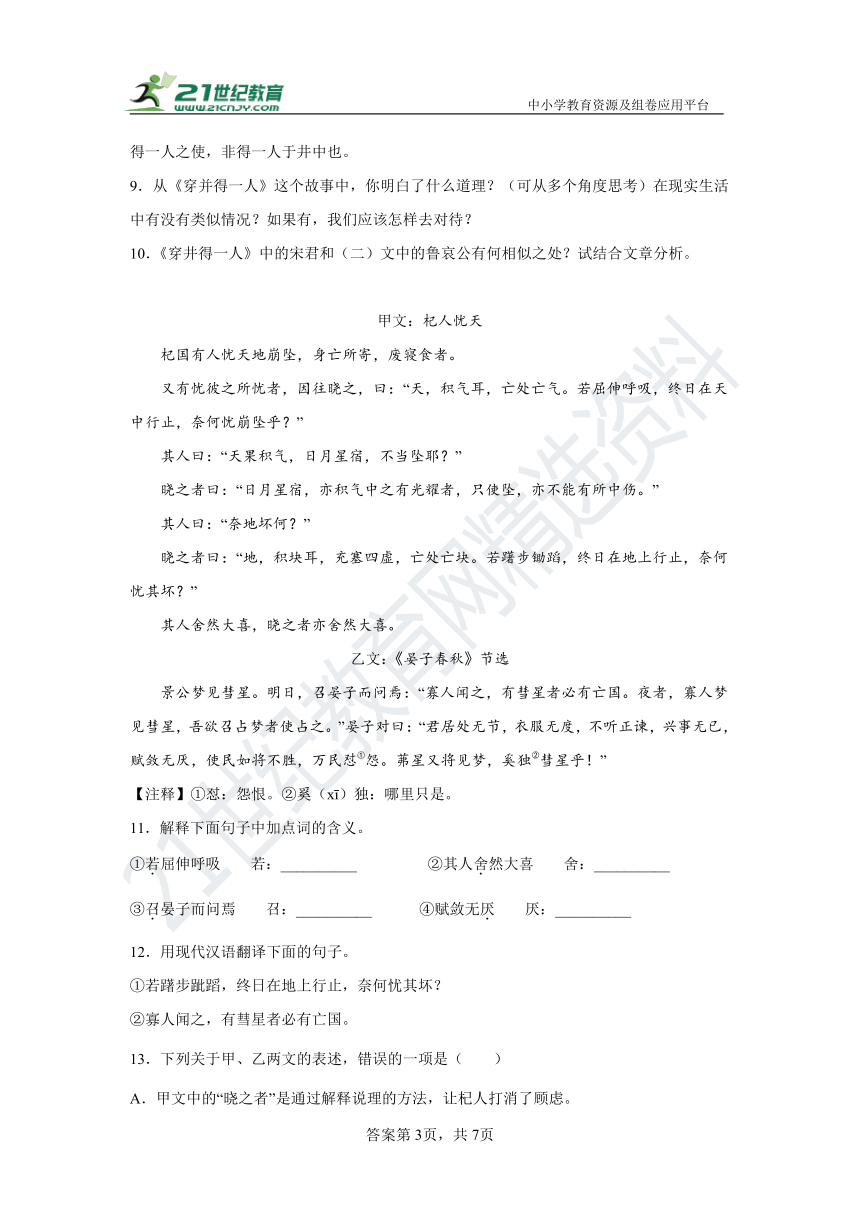 21世纪教育
WWW.21CNJY.COM
中小学教育资源及组卷应用平台
得一人之使，非得一人于井中也。
9．从《穿并得一人》这个故事中，你明白了什么道理？（可从多个角度思考）在现实生活
中有没有类似情况？如果有，我们应该怎样去对待？
10．《穿井得一人》中的宋君和（二）文中的鲁哀公有何相似之处？试结合文章分析。
甲文：杞人忧天
杞国有人忧天地崩坠，身亡所寄，废寝食者。
又有忧彼之所忧者，因往晓之，曰：“天，积气耳，亡处亡气。若屈伸呼吸，终日在天
中行止，奈何忧崩坠乎？”
其人曰：“天果积气，日月星宿，不当坠耶？”
晓之者曰：“日月星宿，亦积气中之有光耀者，只使坠，亦不能有所中伤。”
其人曰：“奈地坏何？”
晓之者曰：“地，积块耳，充塞四虚，亡处亡块。若躇步锄蹈，终日在地上行止，奈何
忧其坏？”
其人舍然大喜，晓之者亦舍然大喜。
乙文：《晏子春秋》节选
景公梦见彗星。明日，召晏子而问焉：“寡人闻之，有彗星者必有亡国。夜者，寡人梦
见彗星，吾欲召占梦者使占之。”晏子对曰：“君居处无节，衣服无度，不听正谏，兴事无已，
赋敛无厌，使民如将不胜，万民怼①怨。茀星又将见梦，奚独②彗星乎！”
【注释】①怼：怨恨。②奚（xī）独：哪里只是。
11．解释下面句子中加点词的含义。
①若屈伸呼吸 若：__________ ②其人舍然大喜 舍：__________
③召晏子而问焉 召：__________ ④赋敛无厌 厌：__________
12．用现代汉语翻译下面的句子。
①若躇步跐蹈，终日在地上行止，奈何忧其坏？
②寡人闻之，有彗星者必有亡国。
13．下列关于甲、乙两文的表述，错误的一项是（　　）
A．甲文中的“晓之者”是通过解释说理的方法，让杞人打消了顾虑。
答案第 3页，共 7页
21世纪教育网精选资料